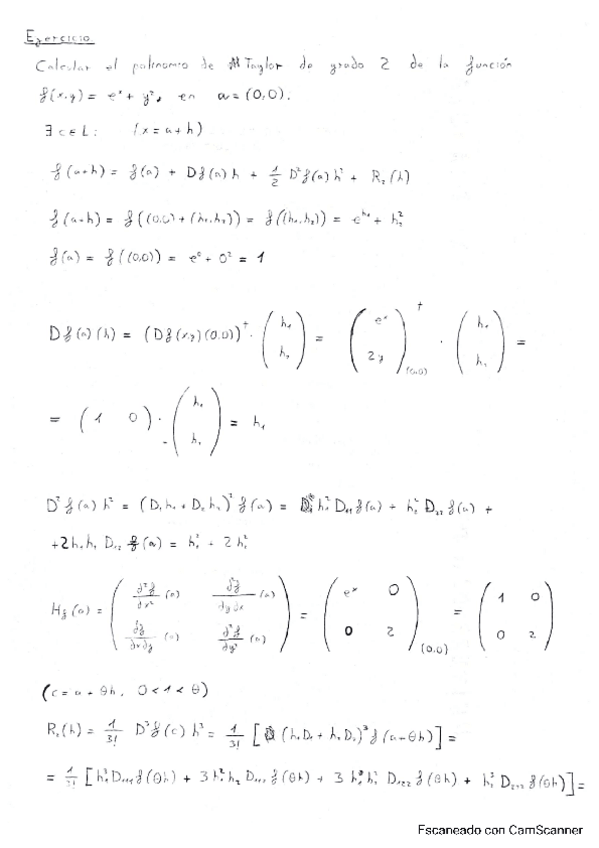 Ejercicio
Calcular el polinomio de Taylor de grado 2 de la función
f(x,y) = eˣ + y², en a = (0,0).
∃ c ∈ L : (x = a + h)
f(a+h) = f(a) + Df(a)h + 1/2 D²f(a)h² + R₂(h)
f(a+h) = f((0,0) + (h₁,h₂)) = f((h₁,h₂)) = e^h₁ + h₂²
f(a) = f((0,0)) = e⁰ + 0² = 1
Df(a)(h) = (Df(x,y)(0,0))ᵗ · (h₁ h₂) = (eˣ 2y)ᵗ (0,0) · (h₁ h₂) =
= (1 0) · (h₁ h₂) = h₁
D²f(a)h² = (D₁h₁ + D₂h₂)² f(a) = h₁² D₁₁f(a) + h₂² D₂₂f(a) +
+2h₁h₂ D₁₂ f(a) = h₁² + 2h₂²
Hf(a) = (∂²f/∂x² (a) ∂f/∂y∂x (a) ∂f/∂x∂y (a) ∂²f/∂y² (a)) = (eˣ 0 0 2) (0,0) = (1 0 0 2)
(c = a + θh, 0 < 1 < θ)
R₂(h) = 1/3! D³f(c)h³ = 1/3! [(h₁D₁ + h₂D₂)³ f(a+θh)] =
= 1/3! [h₁³D₁₁₁f(θh) + 3h₁²h₂ D₁₁₂f(θh) + 3h₁h₂² D₁₂₂f(θh) + h₂³ D₂₂₂f(θh)] =
Escaneado con CamScanner